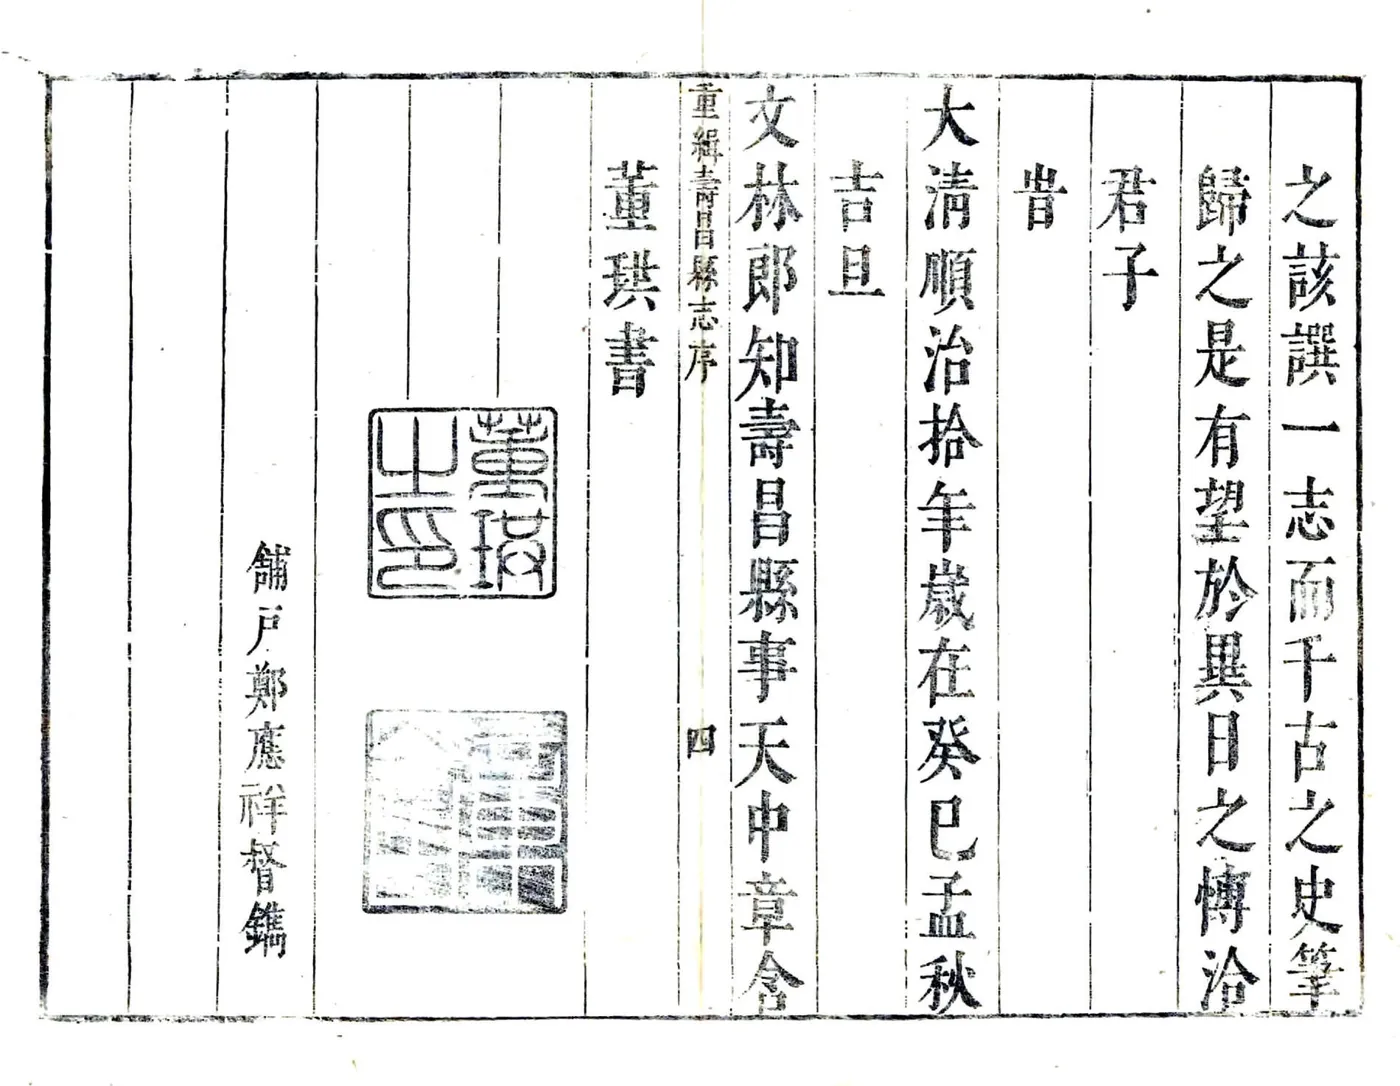 之該譔一志而千古之史筆
歸之是有望於異日之愽洽
君子
旹
大清順治拾年歲在癸巳孟秋
吉旦
文林郎知壽昌縣事天中章含
重緝壽昌縣志序
四
董珙書
董珙之印
舖戶鄭應祥督鐫